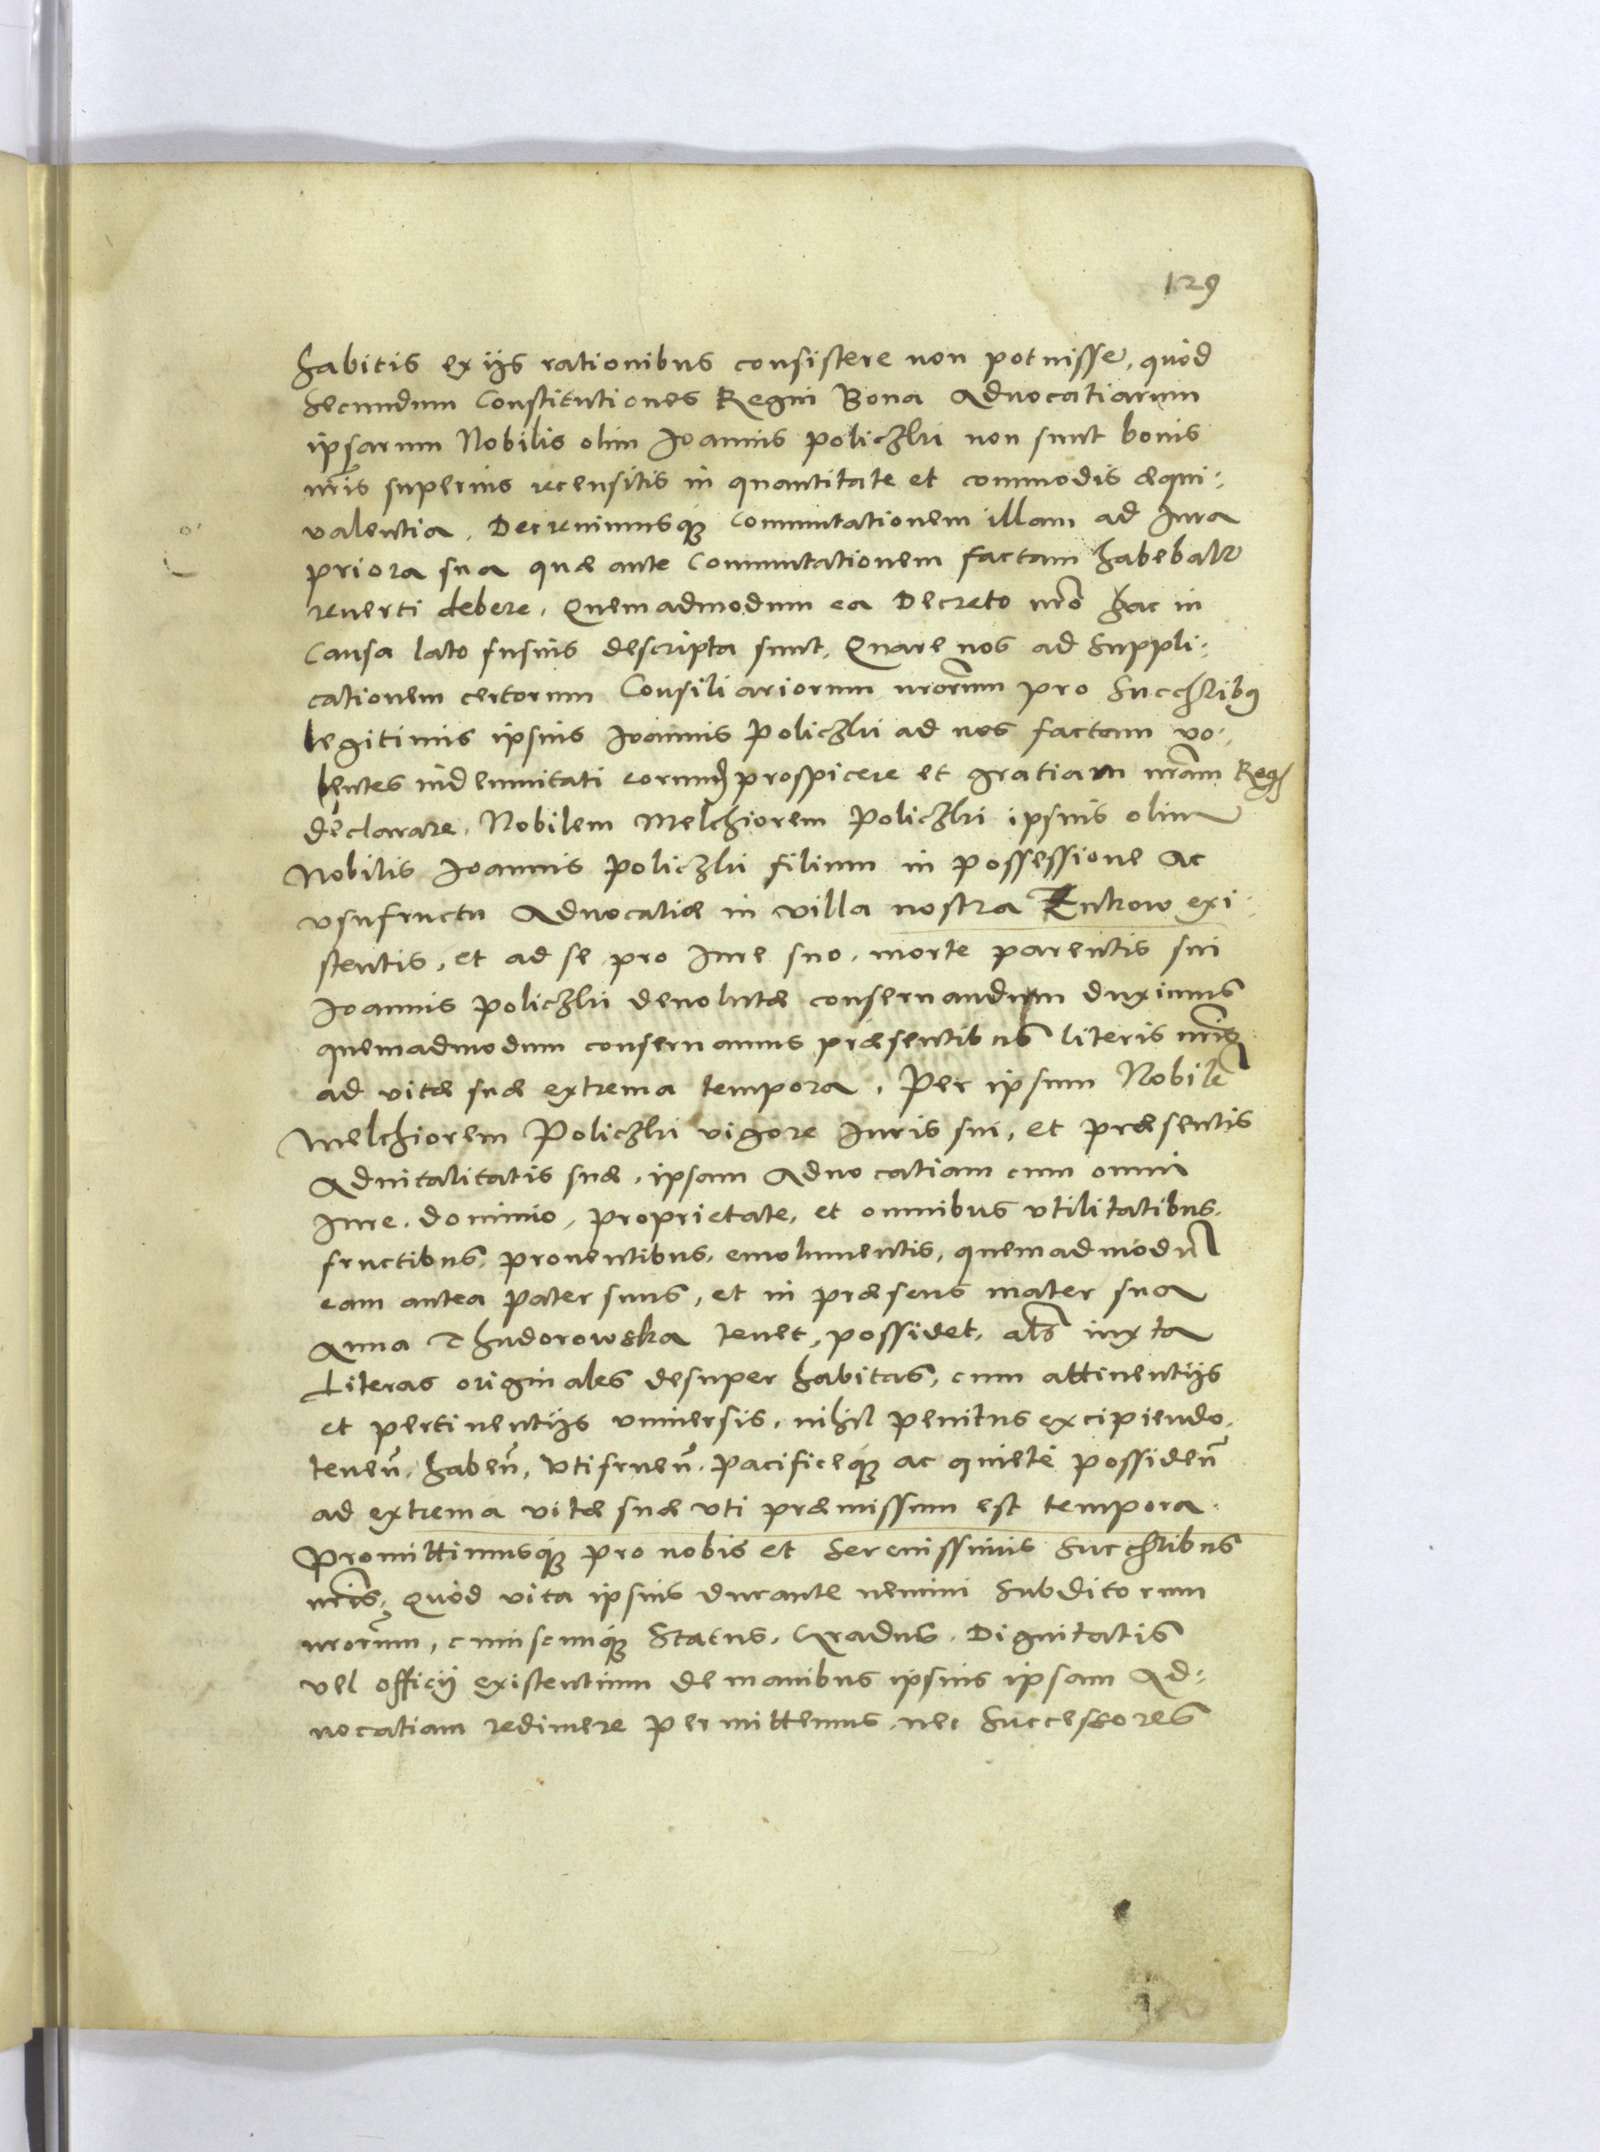 129
habitis ex ijs rationibus consistere non potuisse, quòd
secundum Constitutiones Regni Bona Aduocatiarum
ipsarum Nobilis olim Joannis Policzki non sunt bonis
nris superius recensitis in quantitate et commodis æqui:
ualentia, Decreuimusq3 Commutationem illam ad Jura
priora sua quæ ante Commutationem factam habebatur
reuerti debere, Quemadmodum ea Decreto nro hac in
Causa lato fusius descripta sunt, Quare nos ad Suppli:
cationem certorum Consiliariorum nrorum pro Succribus
legitimis ipsius Joannis Policzki ad nos factam vo:
lentes indemnitati eorum prospicere et gratiam nram Reg
declarare, Nobilem Melchiorem Policzki ipsius olim
Nobilis Joannis Policzki filium in possessione ac
vsufructu Aduocatiæ in villa nostra exi:
stentis, et ad se pro Jure suo, morte parentis sui
Joannis Policzki deuolutæ conseruandum duximus
quemadmodum conseruamus præsentibus literis nris
ad vitæ suæ extrema tempora, Per ipsum Nobile
Melchiorem Policzki vigore Juris sui, et præsentis
Aduitalitatis suæ, ipsam Aduocatiam cum omni
Jure, dominio, proprietate, et omnibus vtilitatibus,
fructibus, prouentibus, emolumentis, quemadmodu
eam antea pater suus, et in præsens mater sua
Anna Chudorowska tenet, possidet, als iuxta
Literas originales desuper habitas, cum attinentijs
et pertinentijs vniuersis, nihil penitus excipiendo,
tenen, haben, vtifruen, pacificeq3 ac quietè possiden
ad extrema vitæ suæ vti præmissum est tempora.
Promittimusq3 pro nobis et Serenissimis Succribus
nris, Quòd vita ipsius durante nemini Subditorum
nrorum, cuiuscunq3 Status, Gradus, Dignitatis
vel officij existentium de manibus ipsius ipsam Ad:
uocatiam redimere permittemus, nec Successores